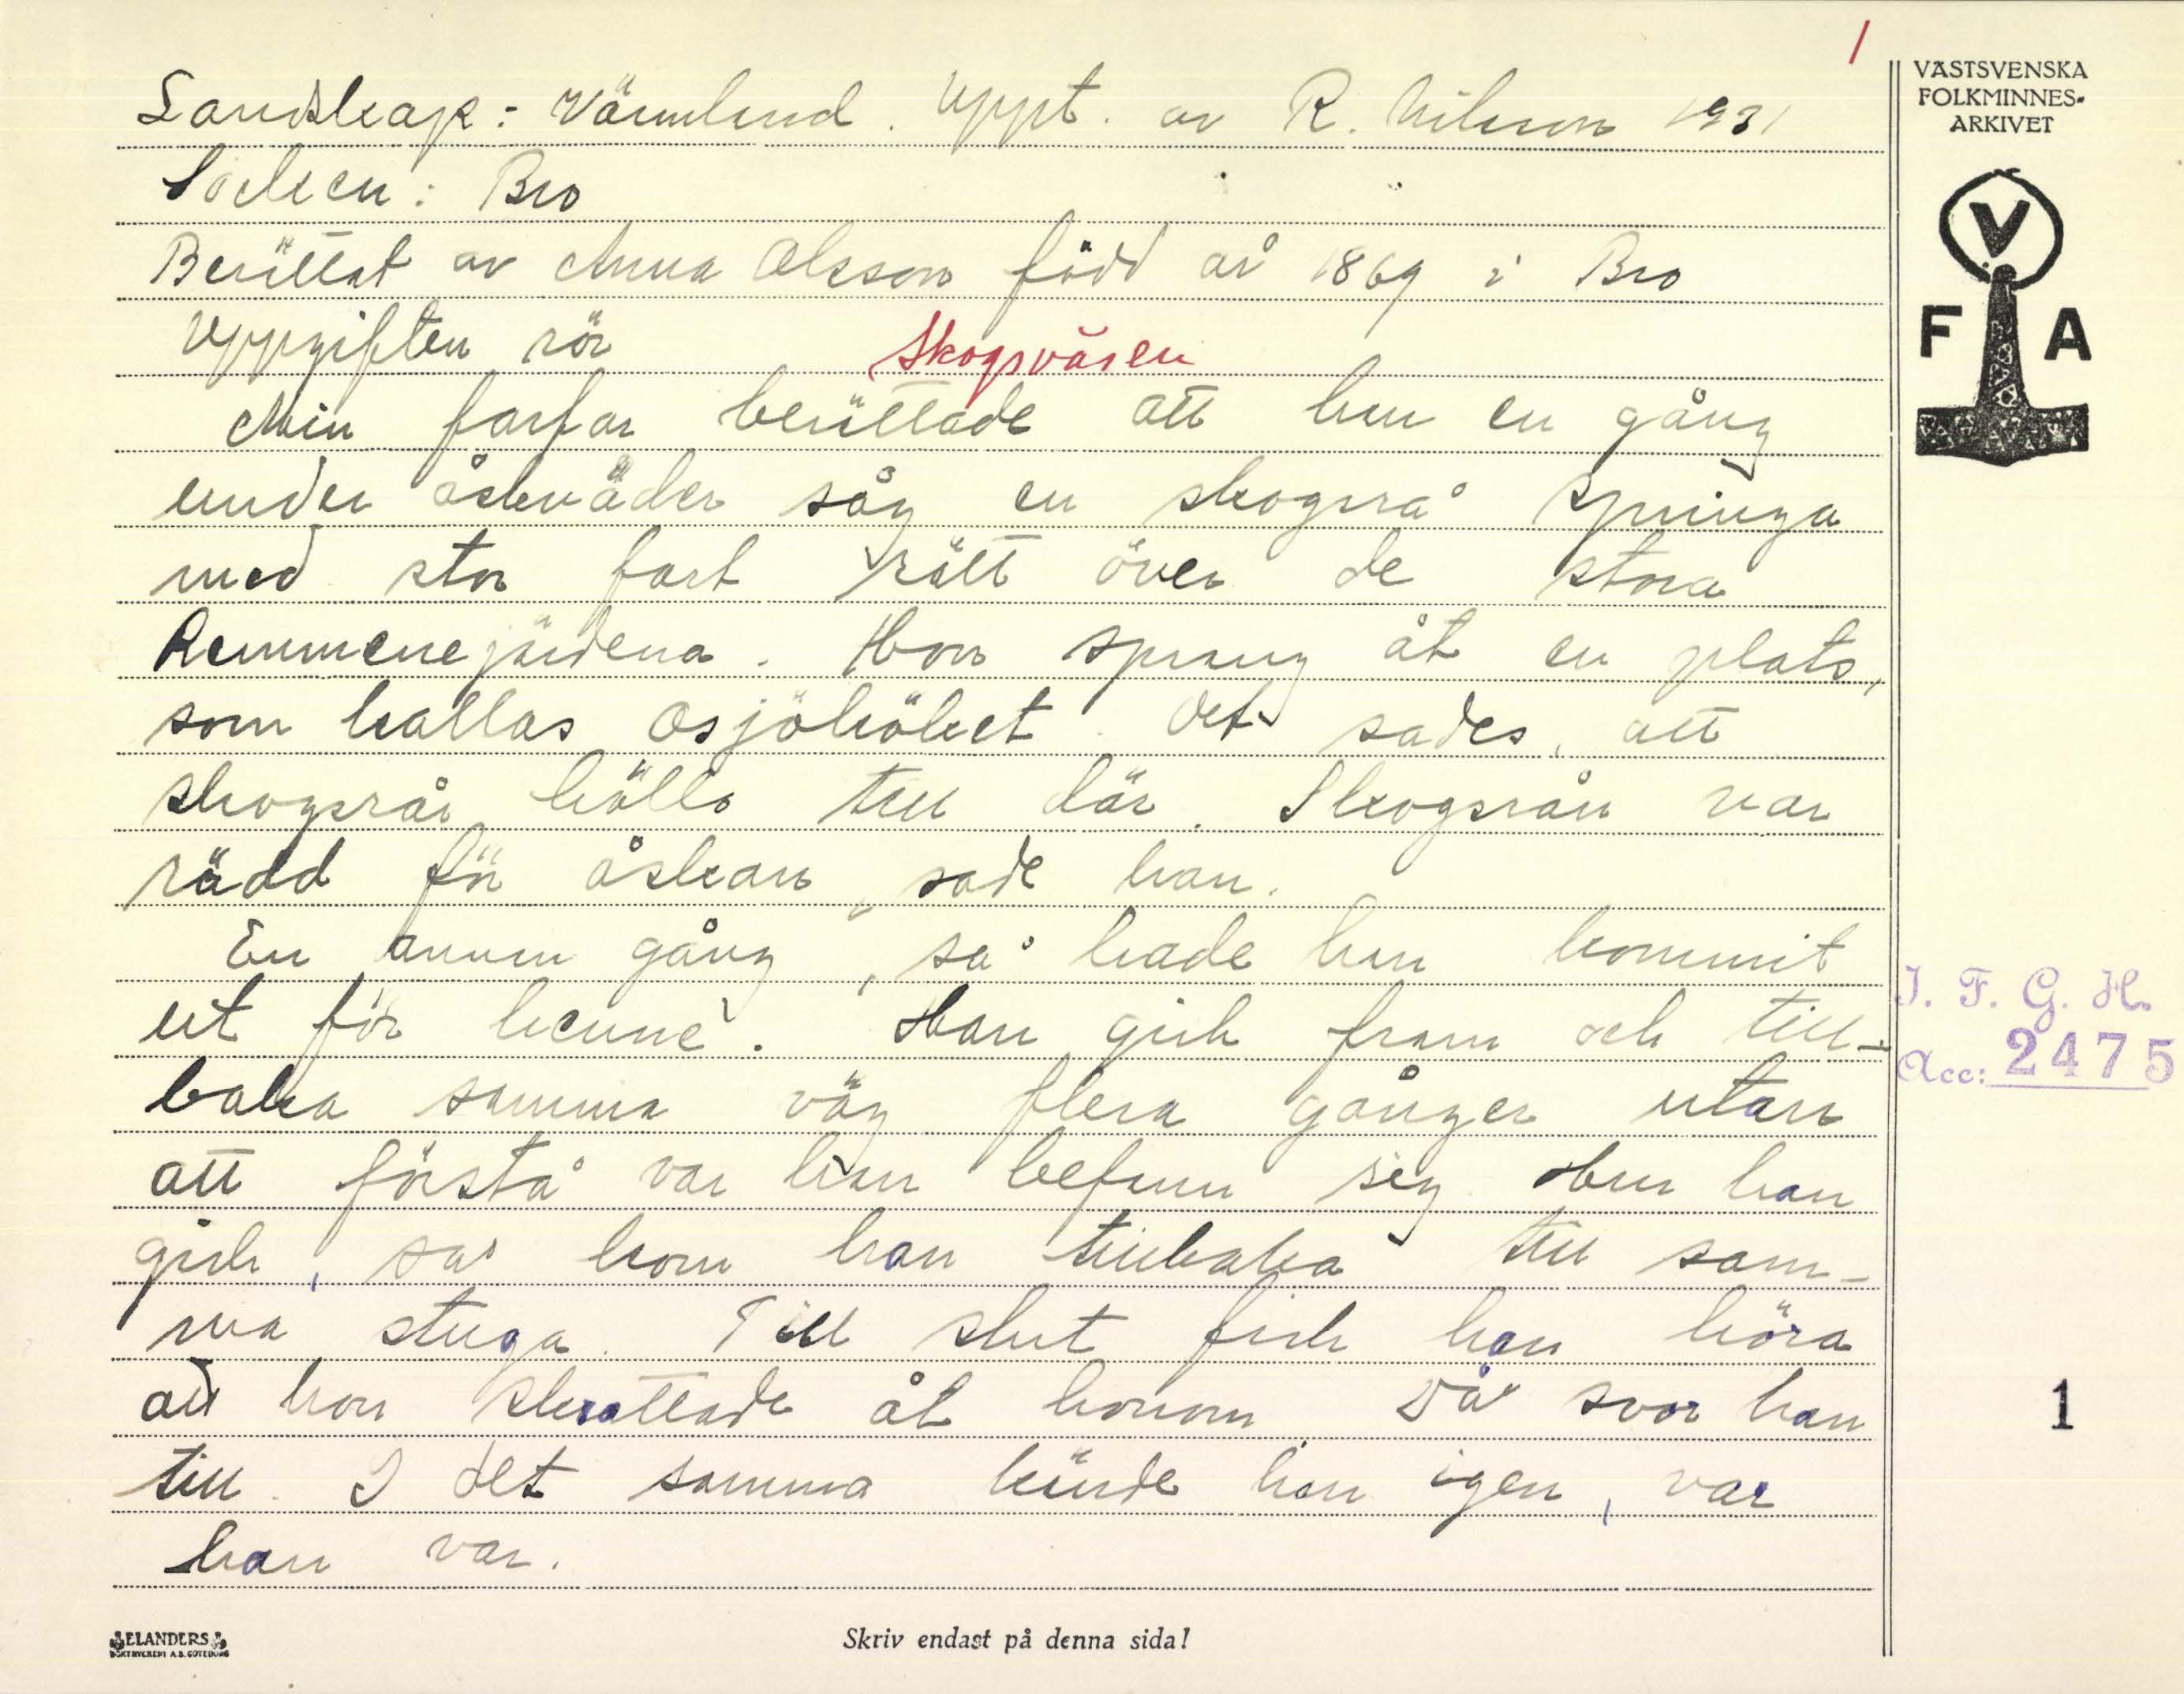 1
VÄSTSVENSKA
FOLKMINNES-
ARKIVET
V
F A
Landskap: Värmland. Uppt. av R. Nilsson 1931
Socken: Bro
Berättat av Anna Olsson född år 1869 i Bro
Uppgiften rör Skogsväsen
Min farfar berättade att han en gång
under åskväder såg en skogsrå springa
med stor fart rätt över de stora
Remmenegärdena. Hon sprang åt en plats,
som kallas Osjöhöket. Det sades, att
skogsrår hölls till där. Skogsrån var
rädd för åskan, sade han.
En annan gång, så hade han kommit
ut för henne. Han gick fram och till-
baka samma väg flera gånger utan
att förstå var han befann sig. Hur han
gick, så kom han tillbaka till sam-
ma stuga. Till slut fick han höra
att hon skrattade åt honom. Då svor han
till. I det samma kände han igen, var
han var.
I. F. G. H.
Acc: 2475
1
ELANDERS
BOKTRYCKERI A.B. GÖTEBORG
Skriv endast på denna sida!